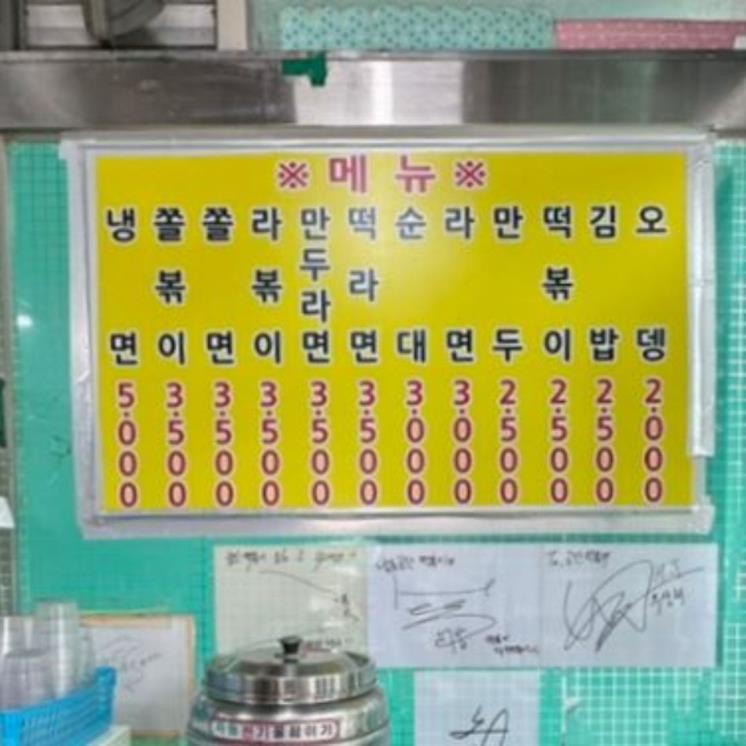 ※메뉴※
냉면 5.000
쫄볶이 3.500
쫄면 3.500
라볶이 3.500
만두라면 3.500
떡라면 3.500
순대 3.000
라면 3.000
만두 2.500
떡볶이 2.500
김밥 2.500
오뎅 2.000